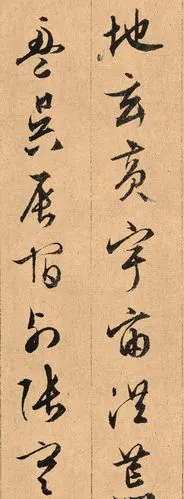 地玄黃宇宙洪荒
盈昃辰宿列張寒